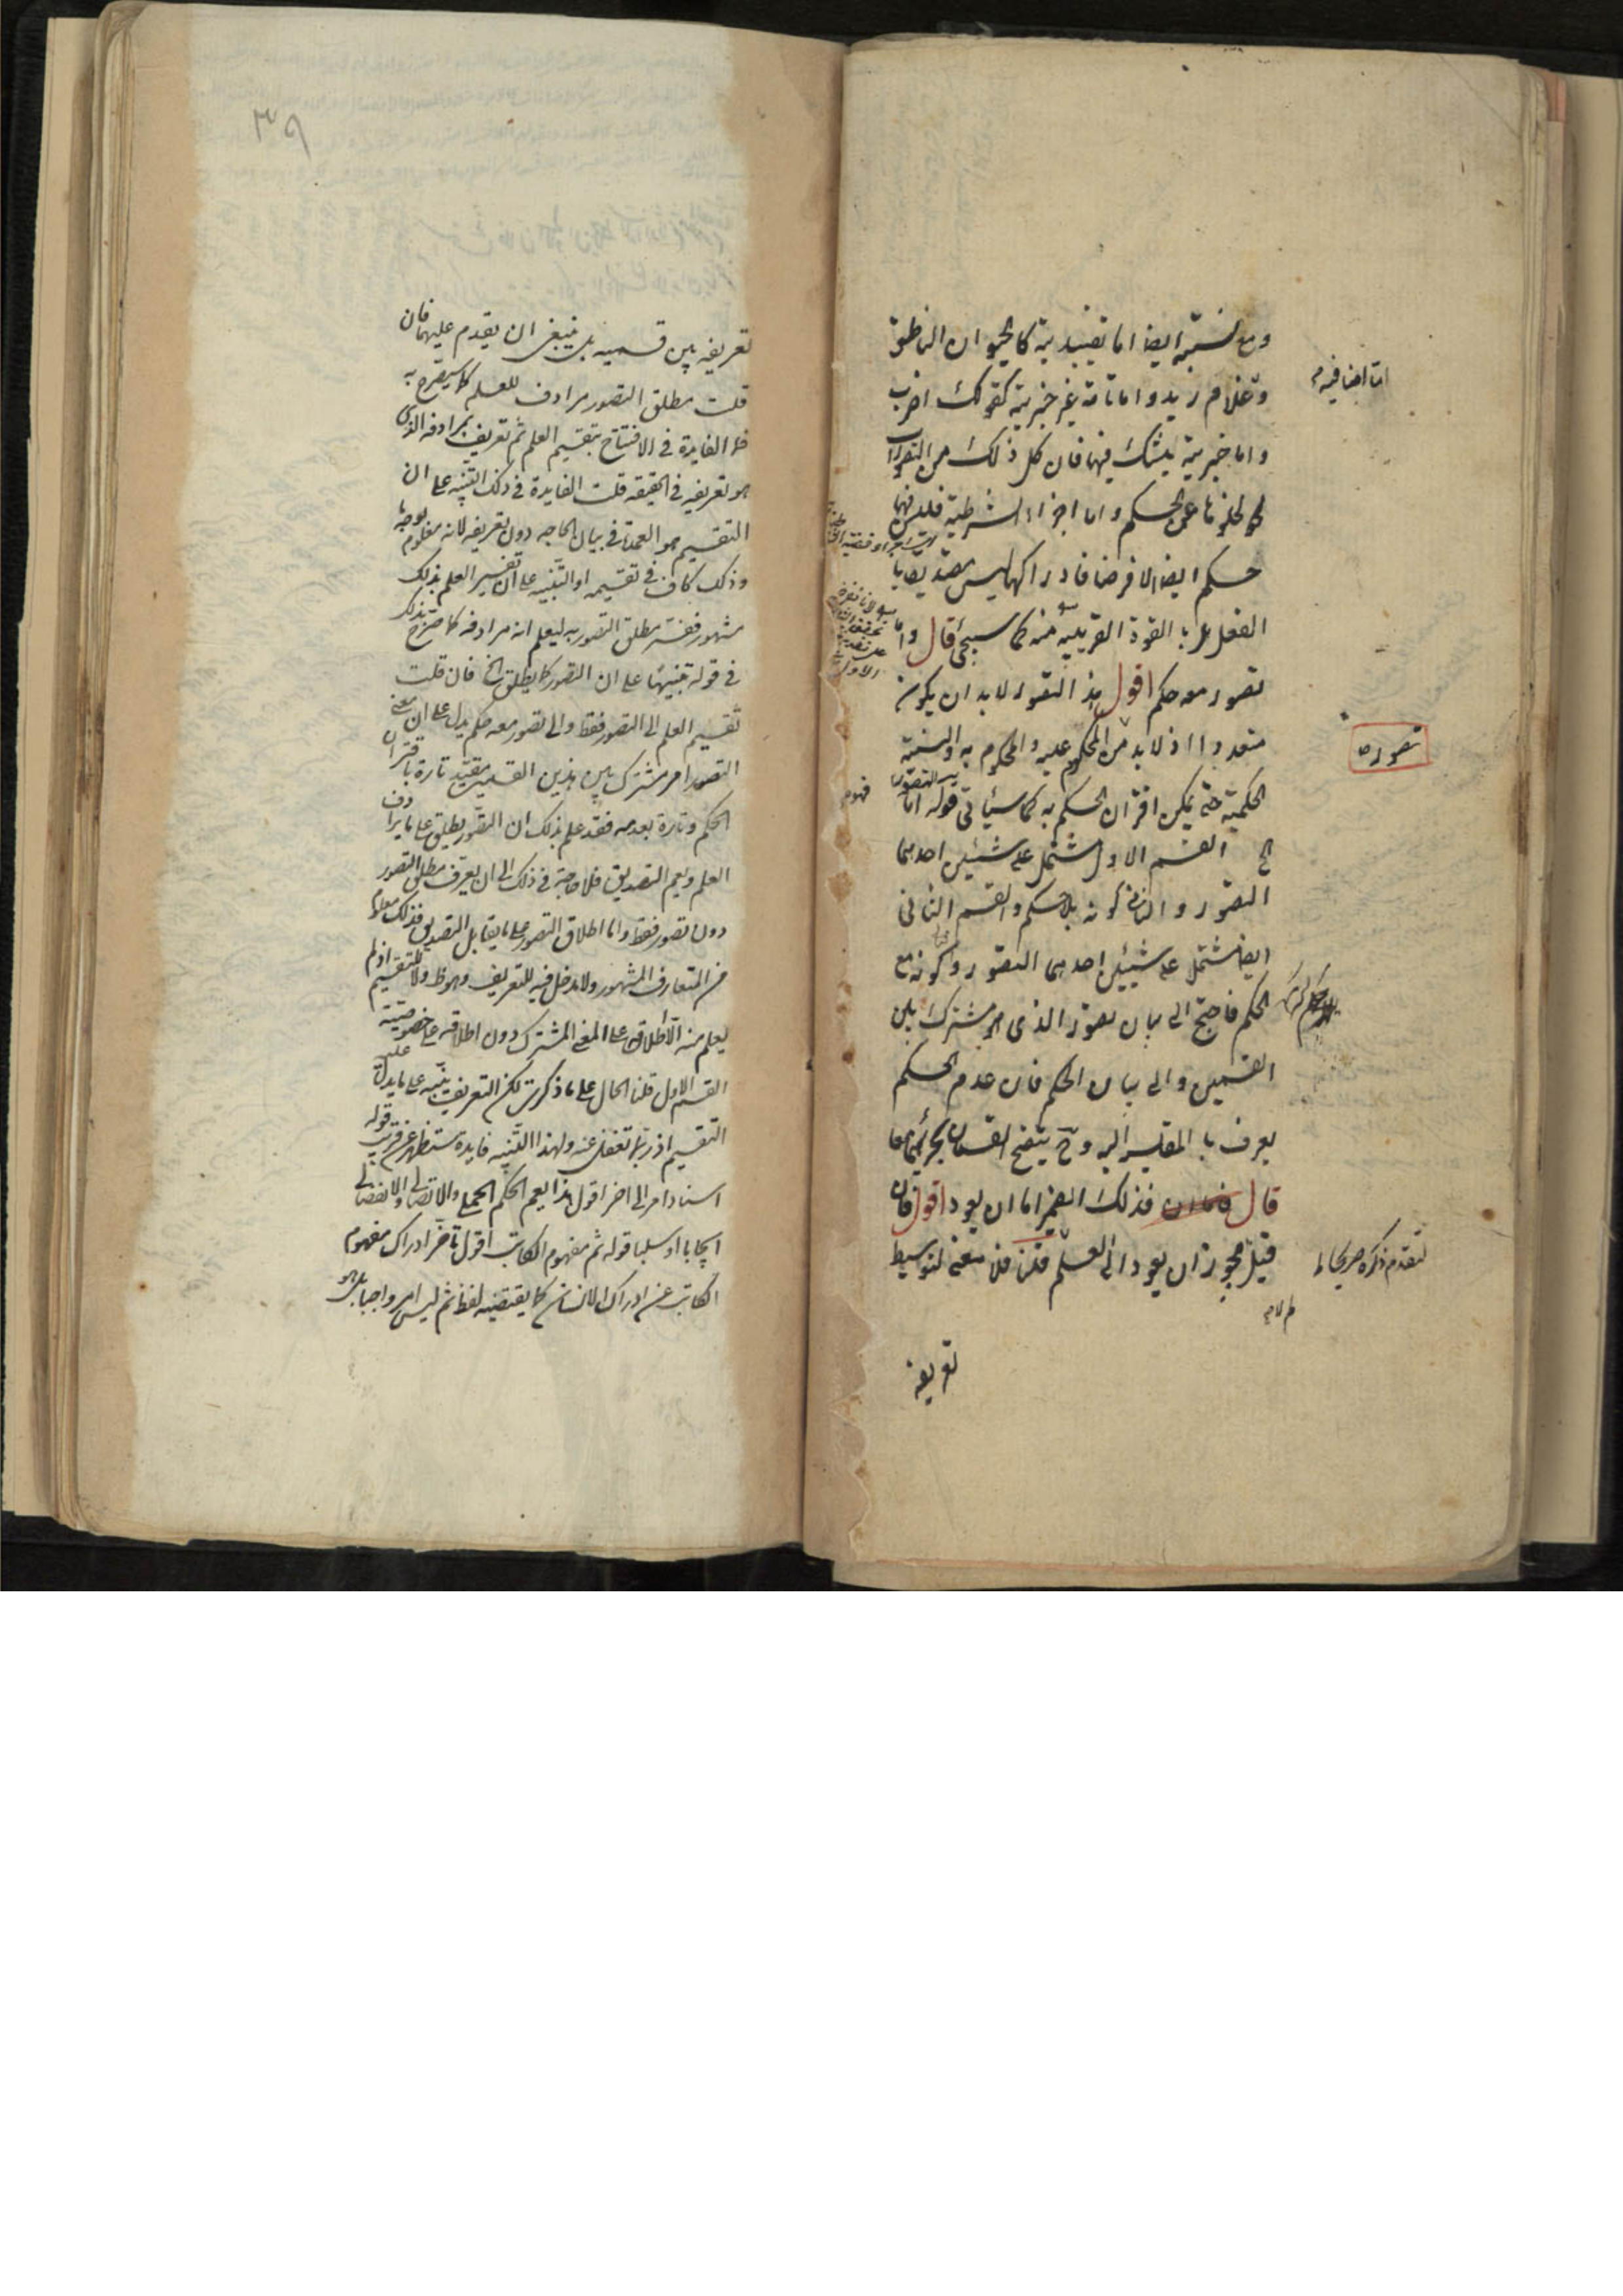 ومع نسبته ايضا اما تقييدية كالحيوان الناطق
وغلام زيد واما تامة غير خبرية كقولك اضرب
واما خبرية يشك فيها فان كل ذلك من التصورات
لخلوها عن الحكم واما اجزاء الشرطية فليس فيها
حكم ايضا الا فرضا فادراكها ليس تصديقا
الفعل بل بالقوة القريبة منه كما سيجئ قال واما
تصور معه حكم اقول هذا التصور لابد ان يكون
متعددا اذ لابد من المحكوم عليه والمحكوم به والنسبة
الحكمية حتى يمكن اقتران الحكم به كما سيأتى قوله اما التصور
الخ القسم الاول مشتمل على شيئين احدهما
التصور والثانى كونه بلا حكم والقسم الثانى
ايضا مشتمل على شيئين احدهما التصور وكونه مع
الحكم فاحتج الى بيان تصور الذى هو مشترك بين
القسمين والى بيان الحكم فان عدم الحكم
يعرف بالمقايسة اليه وح يتضح القسمان بجزئيهما معا
قال فذلك الضمير اما ان يعود اقول فان
قيل يجوز ان يعود الى العلم قلنا فلا معنى لتوسيط
تعريفه
اما اضافية
تصوره
لتقدم ذكره صريحا
٣٩
تعريفه بين قسميه بل ينبغى ان يقدم عليهما فان
قلت مطلق التصور مرادف للعلم كما سيصرح به
فما الفايدة فى الافتتاح بتقسيم العلم ثم تعريف بمرادفه الذى
هو تعريفه فى الحقيقة قلت الفايدة فى ذلك التنبيه على ان
التقسيم هو العمدة فى بيان الحاجه دون تعريفه لانه معلوم بوجه ما
وذلك كاف فى تقسيمه او التنبيه على ان تفسير العلم بذلك
مشهور ففسر مطلق التصور به ليعلم انه مرادفه كما صرح بذلك
فى قوله تنبيها على ان التصور كما يطلق الخ فان قلت
تقسيم العلم الى التصور فقط والى تصور معه حكم يدل على ان معنى
التصور امر مشترك بين هذين القسمين مقيد تارة باقتران
الحكم وتارة بعدمه فقد علم بذلك ان التصور يطلق على ما يرادف
العلم ويعم التصديق فلا حاجة فى ذلك الى ان يعرف مطلق التصور
دون تصور فقط واما اطلاق التصور على ما يقابل التصديق فذلك معلوم
من المتعارف المشهور ولا مدخل فيه للتعريف وهو ظ ولا للتقسيم اذ لم
يعلم منه الا اطلاقه على المعنى المشترك دون اطلاقه على خصوصية
القسم الاول قلنا الحال على ما ذكرت لكن التعريف ينبه على ما يدل عليه
التقسيم اذ ربما تغفل عنه ولهذا التنبيه فايدة ستظهر عن قريب قوله
اسناد امر الى اخر اقول هذا يعم الحكم الحملى والاتصالى والانفصالى
ايجابا او سلبا قوله ثم مفهوم الكاتب اقول تأخر ادراك مفهوم
الكاتب عن ادراك الانسان كما يقتضيه لفظ ثم ليس امرا واجبا بل هو